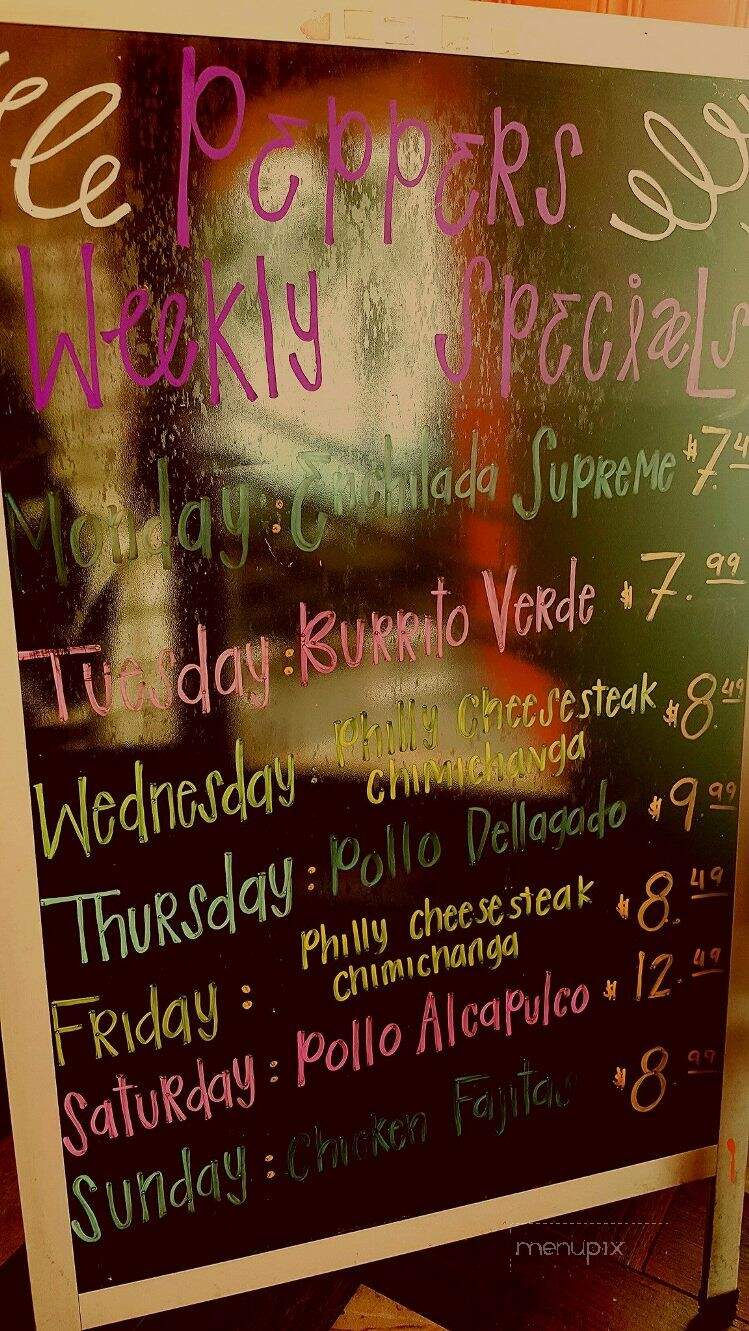 Peppers
Weekly Specials
Monday: Enchilada Supreme $7.4
Tuesday: Burrito Verde $7.99
Wednesday: Philly Cheesesteak $8.49
chimichanga
Thursday: Pollo Dellagado $9.99
Friday: Philly cheesesteak $8.49
chimichanga
Saturday: Pollo Alcapulco $12.49
Sunday: Chicken Fajitas $8.99
menupix